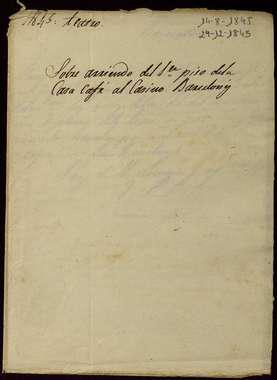 1845. Teatro.
14-8-1845
29-12-1845
Sobre arriendo del 1.er piso de la
Casa Café al Casino Barcelonés